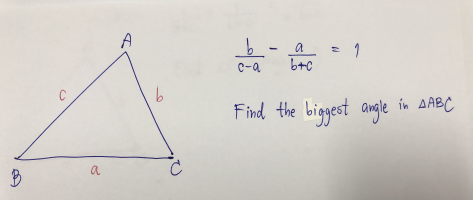 A
c
b
B
a
C
b/(c-a) - a/(b+c) = 1
Find the biggest angle in △ABC